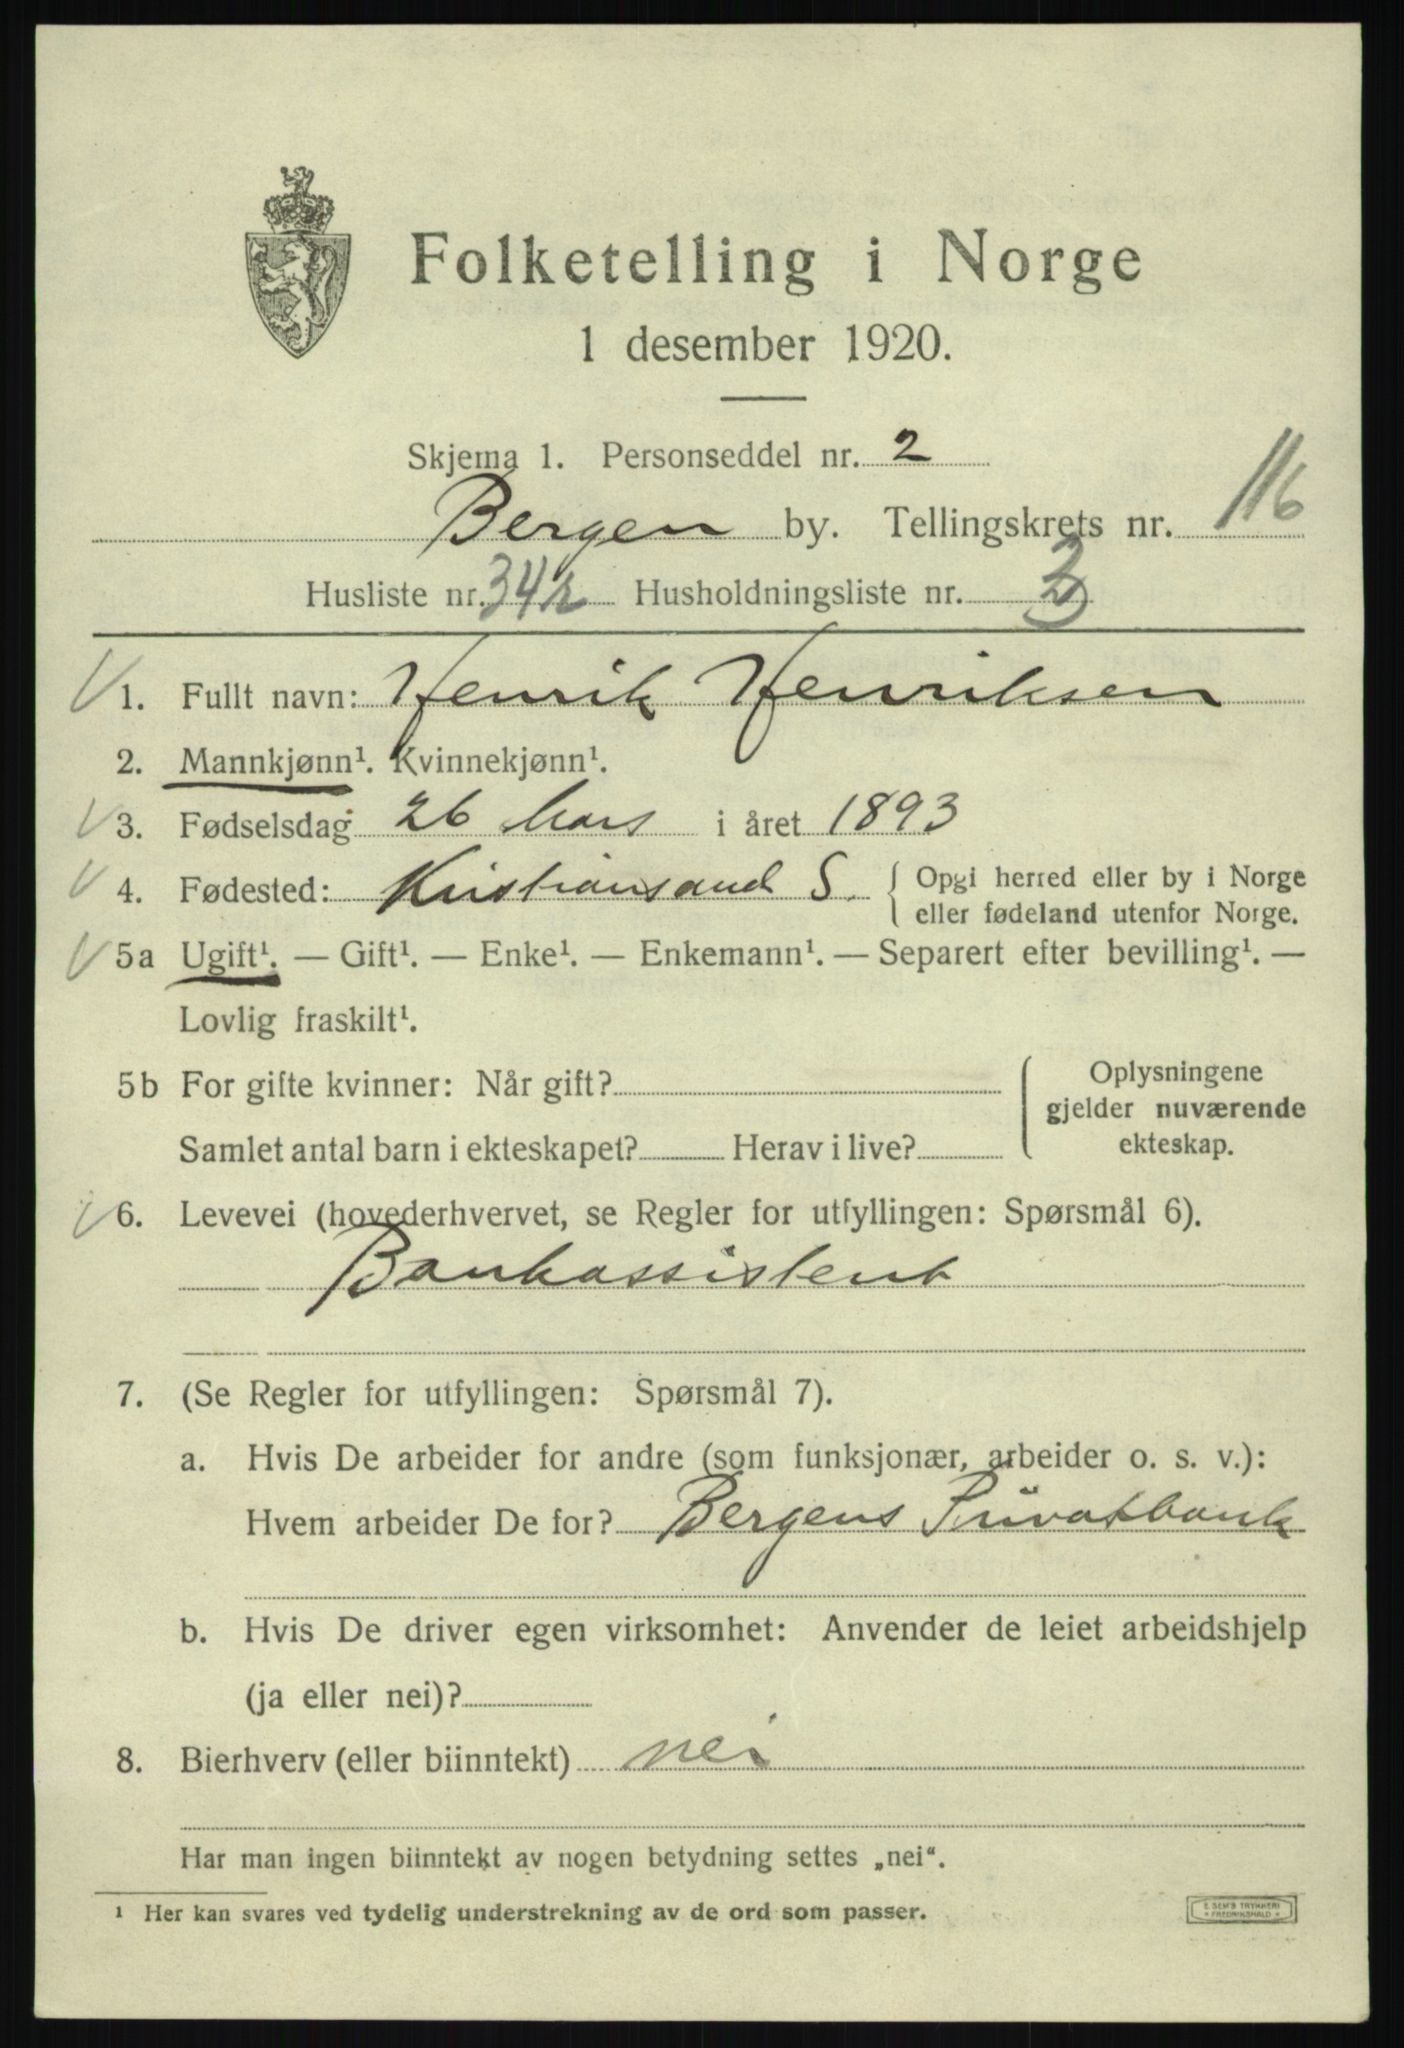 Folketelling i Norge
1 desember 1920.
Skjema 1. Personseddel nr. 2
Bergen by. Tellingskrets nr. 116
Husliste nr. 34 Husholdningsliste nr.
1. Fullt navn: Henrik Henriksen
2. Mannkjønn¹. Kvinnekjønn¹.
3. Fødselsdag 26 Mars i året 1893
4. Fødested: Kristiansand S. Opgi herred eller by i Norge
eller fødeland utenfor Norge.
5a Ugift¹. — Gift¹. — Enke¹. — Enkemann¹. — Separert efter bevilling¹. —
Lovlig fraskilt¹.
5b For gifte kvinner: Når gift? Oplysningene
gjelder nuværende
Samlet antal barn i ekteskapet? Herav i live? ekteskap.
6. Levevei (hovederhvervet, se Regler for utfyllingen: Spørsmål 6).
Bankassistent
7. (Se Regler for utfyllingen: Spørsmål 7).
a. Hvis De arbeider for andre (som funksjonær, arbeider o. s. v.):
Hvem arbeider De for? Bergens Privatbank
b. Hvis De driver egen virksomhet: Anvender de leiet arbeidshjelp
(ja eller nei)?
8. Bierhverv (eller biinntekt) nei
Har man ingen biinntekt av nogen betydning settes „nei“.
¹ Her kan svares ved tydelig understrekning av de ord som passer.
E. SEM'S TRYKKERI
* FREDRIKSHALD *